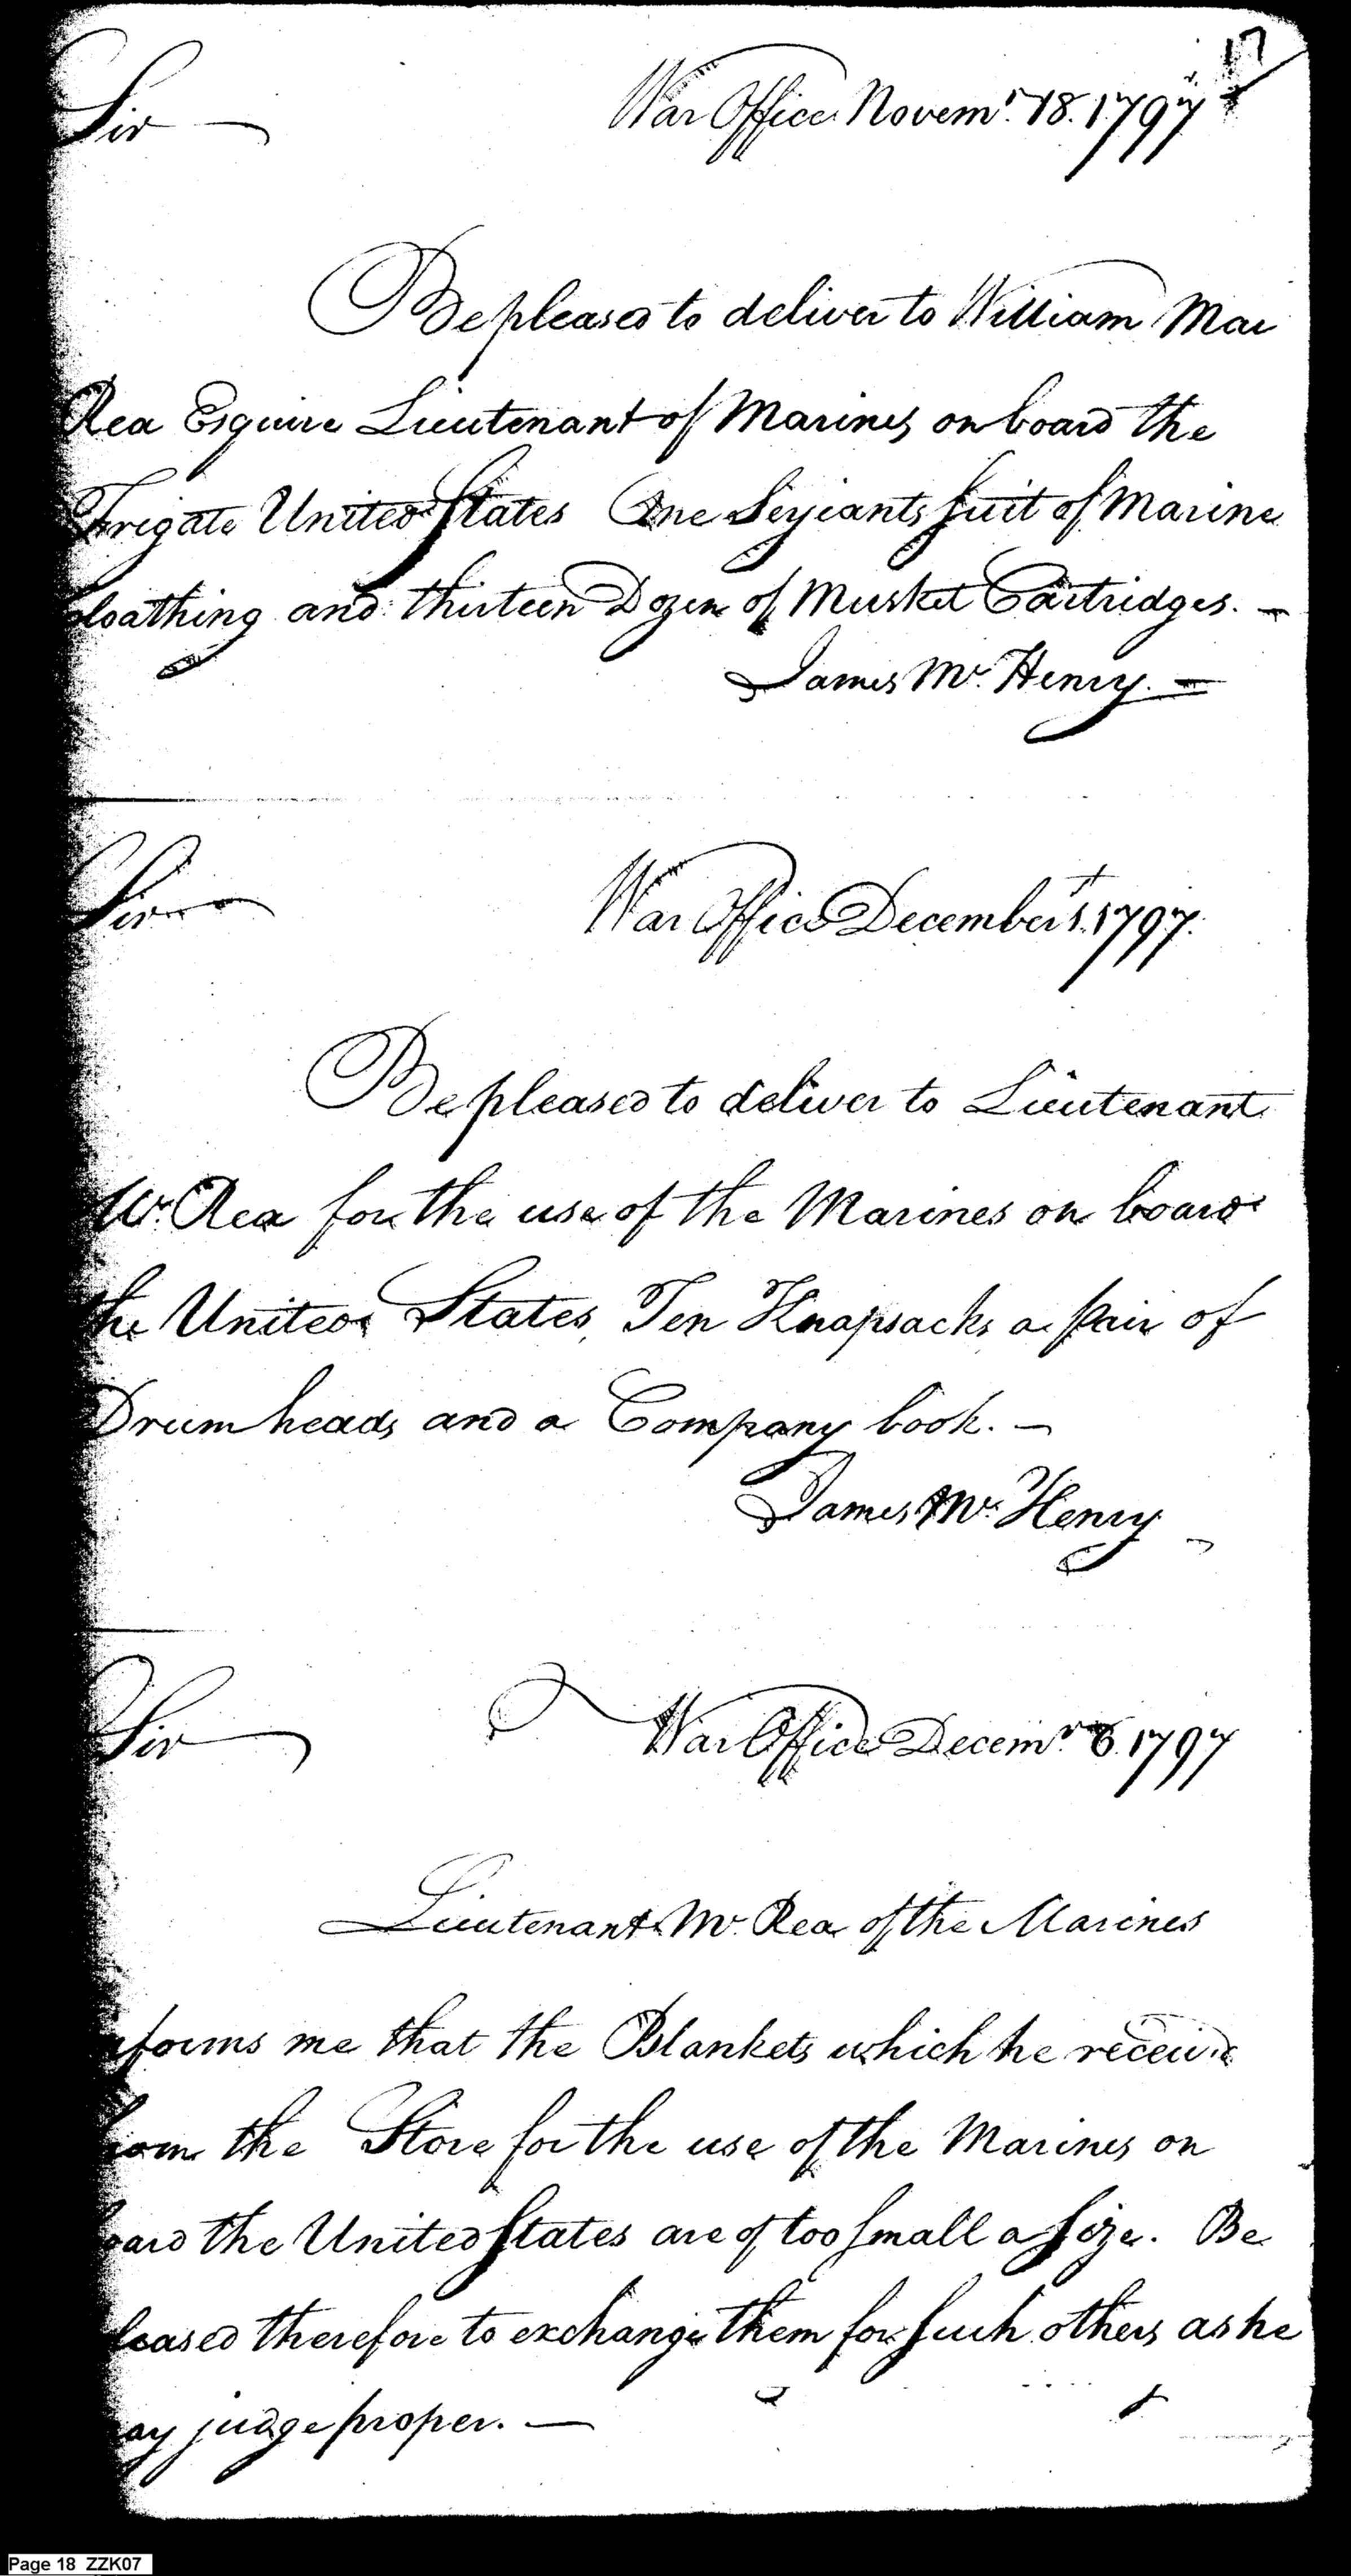 17
Sir — War Office Novemr. 18. 1797
Be pleased to deliver to William Mac
Rea Esquire Lieutenant of Marines on board the
Frigate United States One Serjeants Suit of Marine
Cloathing and thirteen Dozen of Musket Cartridges. —
James Mc. Henry. —
Sir — War Office December 1. 1797.
Be pleased to deliver to Lieutenant
Mc. Rea for the use of the Marines on board
the United States, Ten Knapsacks a pair of
Drum heads and a Company book. —
James Mc. Henry
Sir War Office Decemr. 6. 1797
Lieutenant Mc. Rea of the Marines
nforms me that the Blankets which he receiv'd
from the Store for the use of the Marines on
oard the United States are of too Small a Size. Be
leased therefore to exchange them for Such others as he
ay judge proper. —
Page 18 ZZK07